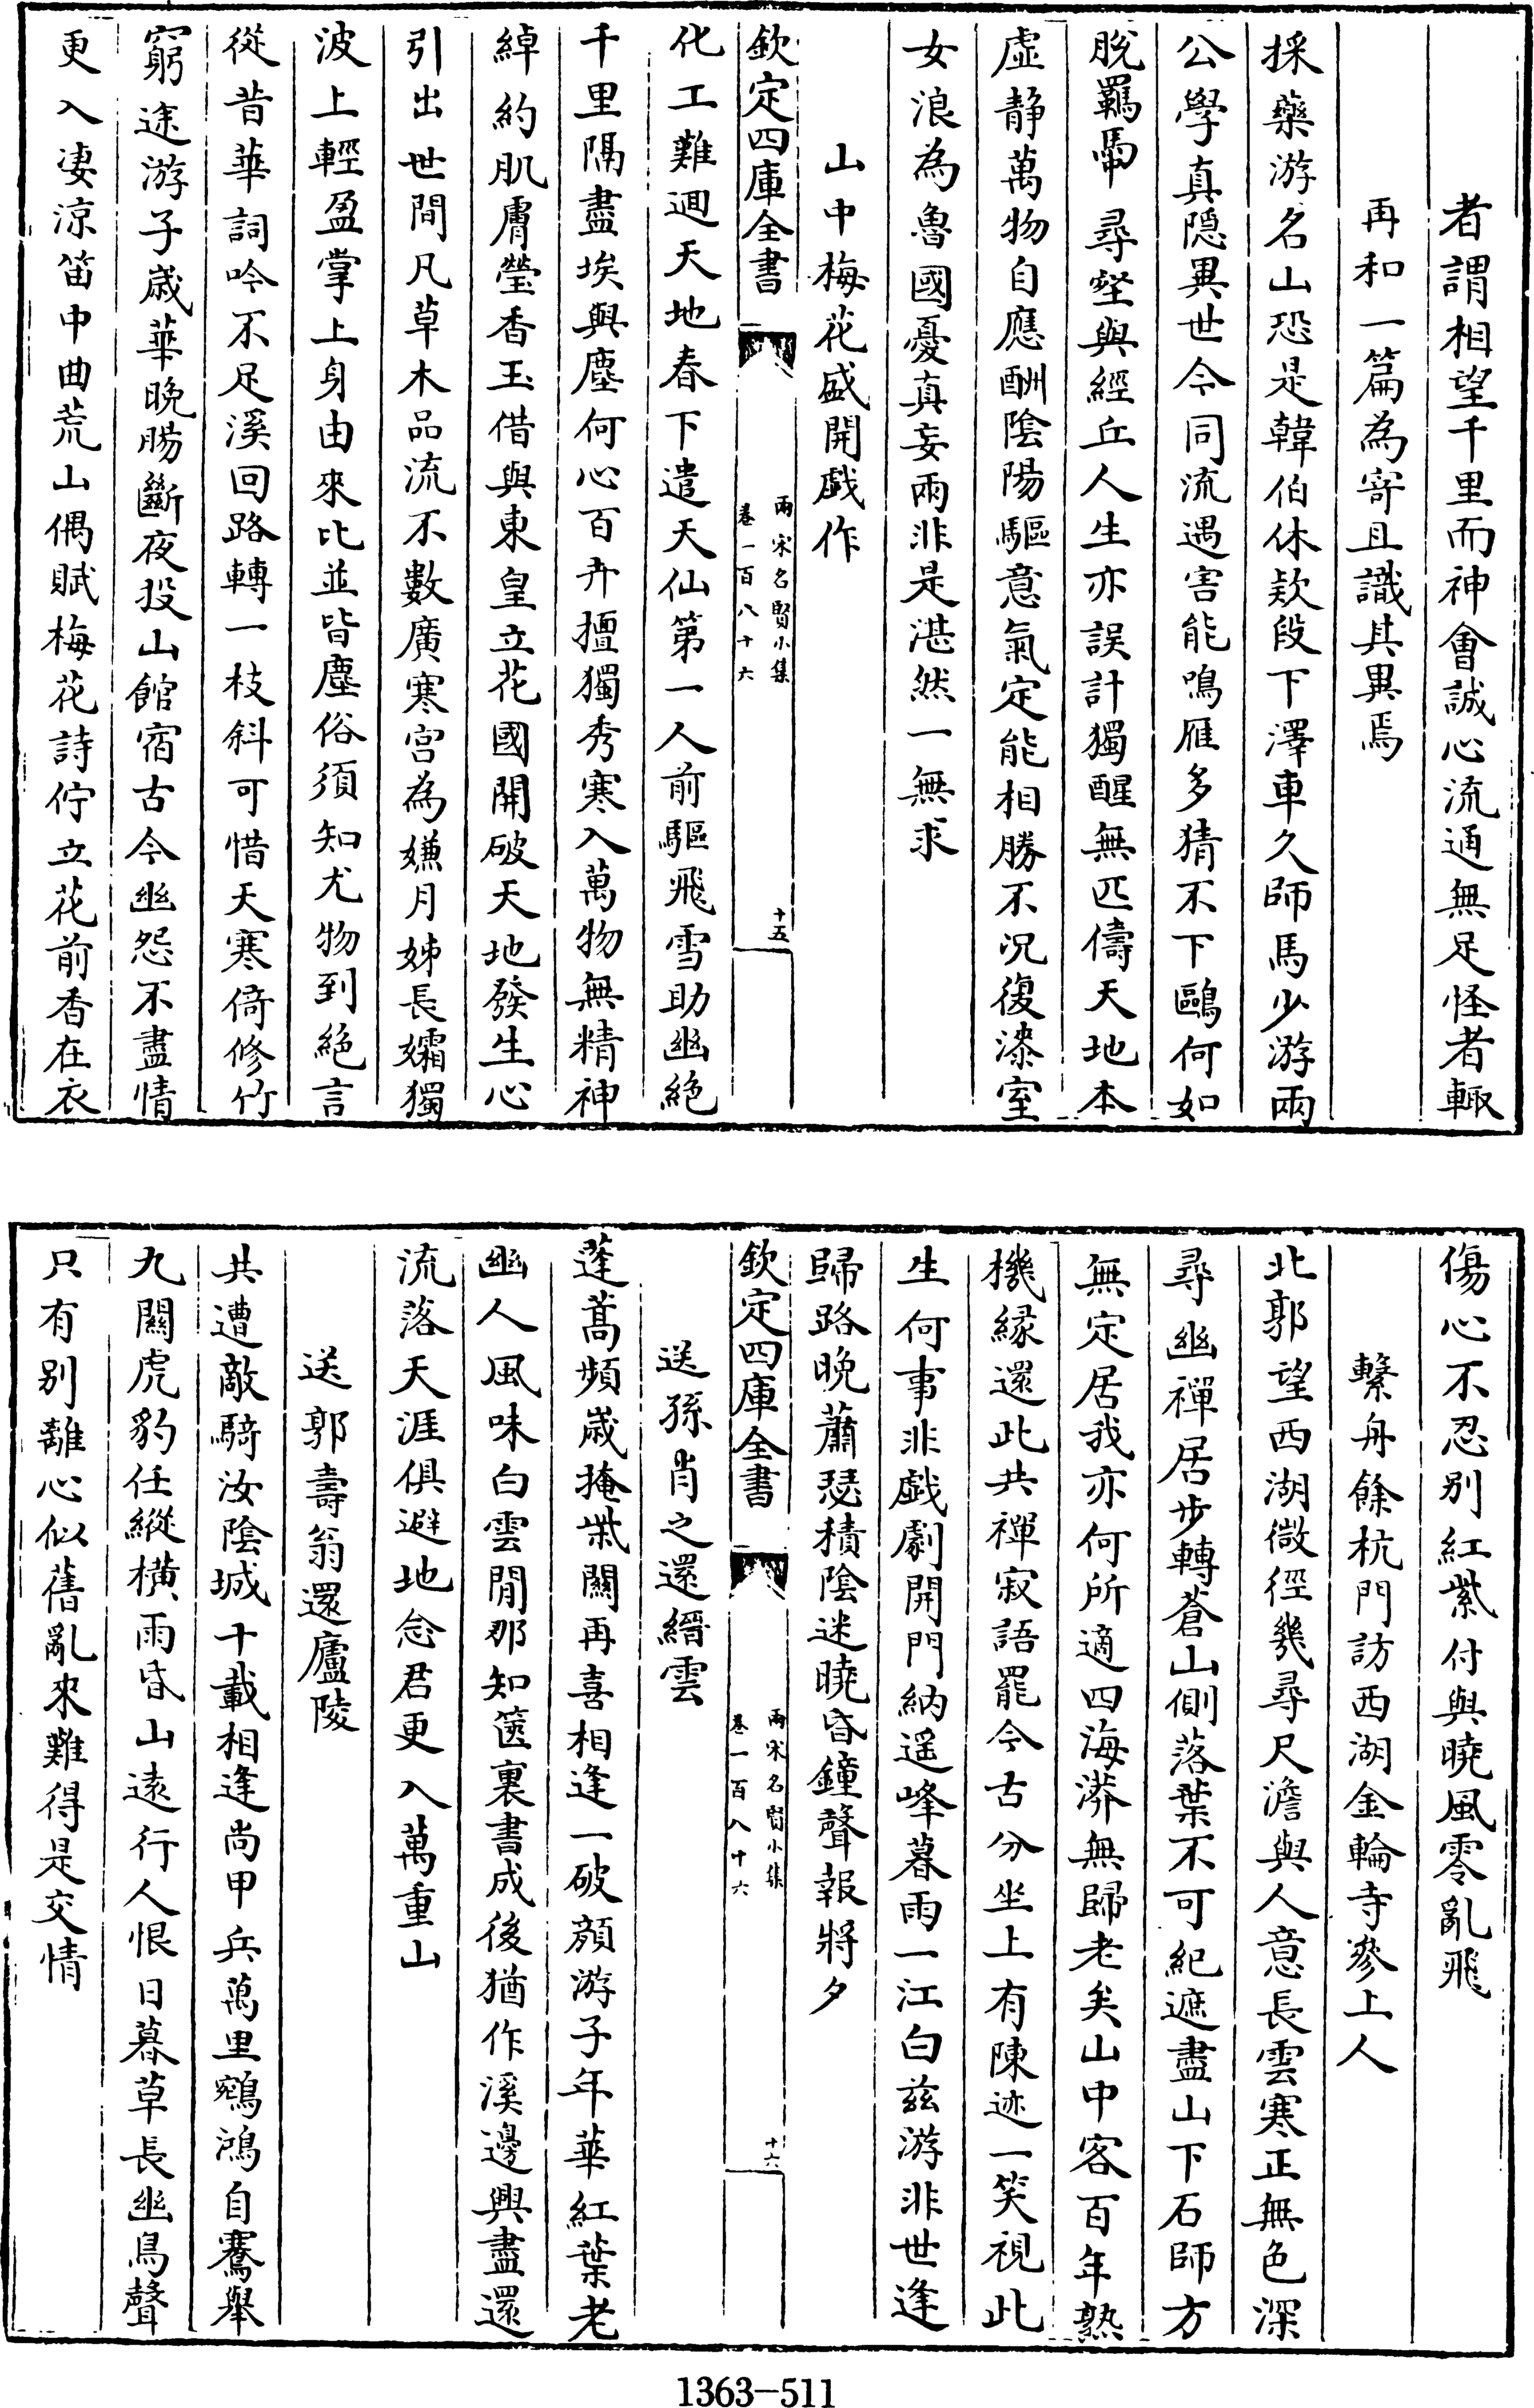 者謂相望千里而神會誠心流通無足怪者輙
再和一篇為寄且識其異焉
採藥游名山恐是韓伯休欵段下澤車久師馬少游兩
公學真隠異世今同流遇害能鳴雁多猜不下鷗何如
脱羈馽尋壑與經丘人生亦誤計獨醒無匹儔天地本
虚静萬物自應酬陰陽驅意氣定能相勝不况復漆室
女浪為魯國憂真妄兩非是湛然一無求
山中梅花盛開戲作
欽定四庫全書
兩宋名賢小集
卷一百八十六
十五
化工難迴天地春下遣天仙第一人前驅飛雪助幽絶
千里隔盡埃與塵何心百卉擅獨秀寒入萬物無精神
綽約肌膚瑩香玉借與東皇立花國開破天地發生心
引出世間凡草木品流不數廣寒宫為嫌月姊長孀獨
波上輕盈掌上身由來比並皆塵俗須知尤物到絶言
從昔華詞吟不足溪回路轉一枝斜可惜天寒倚修竹
窮途游子歲華晚腸斷夜投山館宿古今幽怨不盡情
更入凄涼笛中曲荒山偶賦梅花詩佇立花前香在衣
傷心不忍别紅紫付與曉風零亂飛
繫舟餘杭門訪西湖金輪寺參上人
北郭望西湖微徑幾尋尺澹與人意長雲寒正無色深
尋幽禪居步轉蒼山側落葉不可紀遮盡山下石師方
無定居我亦何所適四海漭無歸老矣山中客百年熟
機縁還此共禪寂語罷今古分坐上有陳迹一笑視此
生何事非戲劇開門納遥峰暮雨一江白兹游非世逢
歸路晚蕭瑟積陰迷曉昏鐘聲報將夕
欽定四庫全書
兩宋名賢小集
卷一百八十六
十六
送孫肖之還縉雲
蓬蒿頻歲掩柴關再喜相逢一破顔游子年華紅葉老
幽人風味白雲閒那知篋裏書成後猶作溪邊興盡還
流落天涯俱避地念君更入萬重山
送郭壽翁還廬陵
共遭敵騎汝陰城十載相逢尚甲兵萬里鵷鴻自騫舉
九關虎豹任縱横雨昏山逺行人恨日暮草長幽鳥聲
只有别離心似舊亂來難得是交情
1363-511